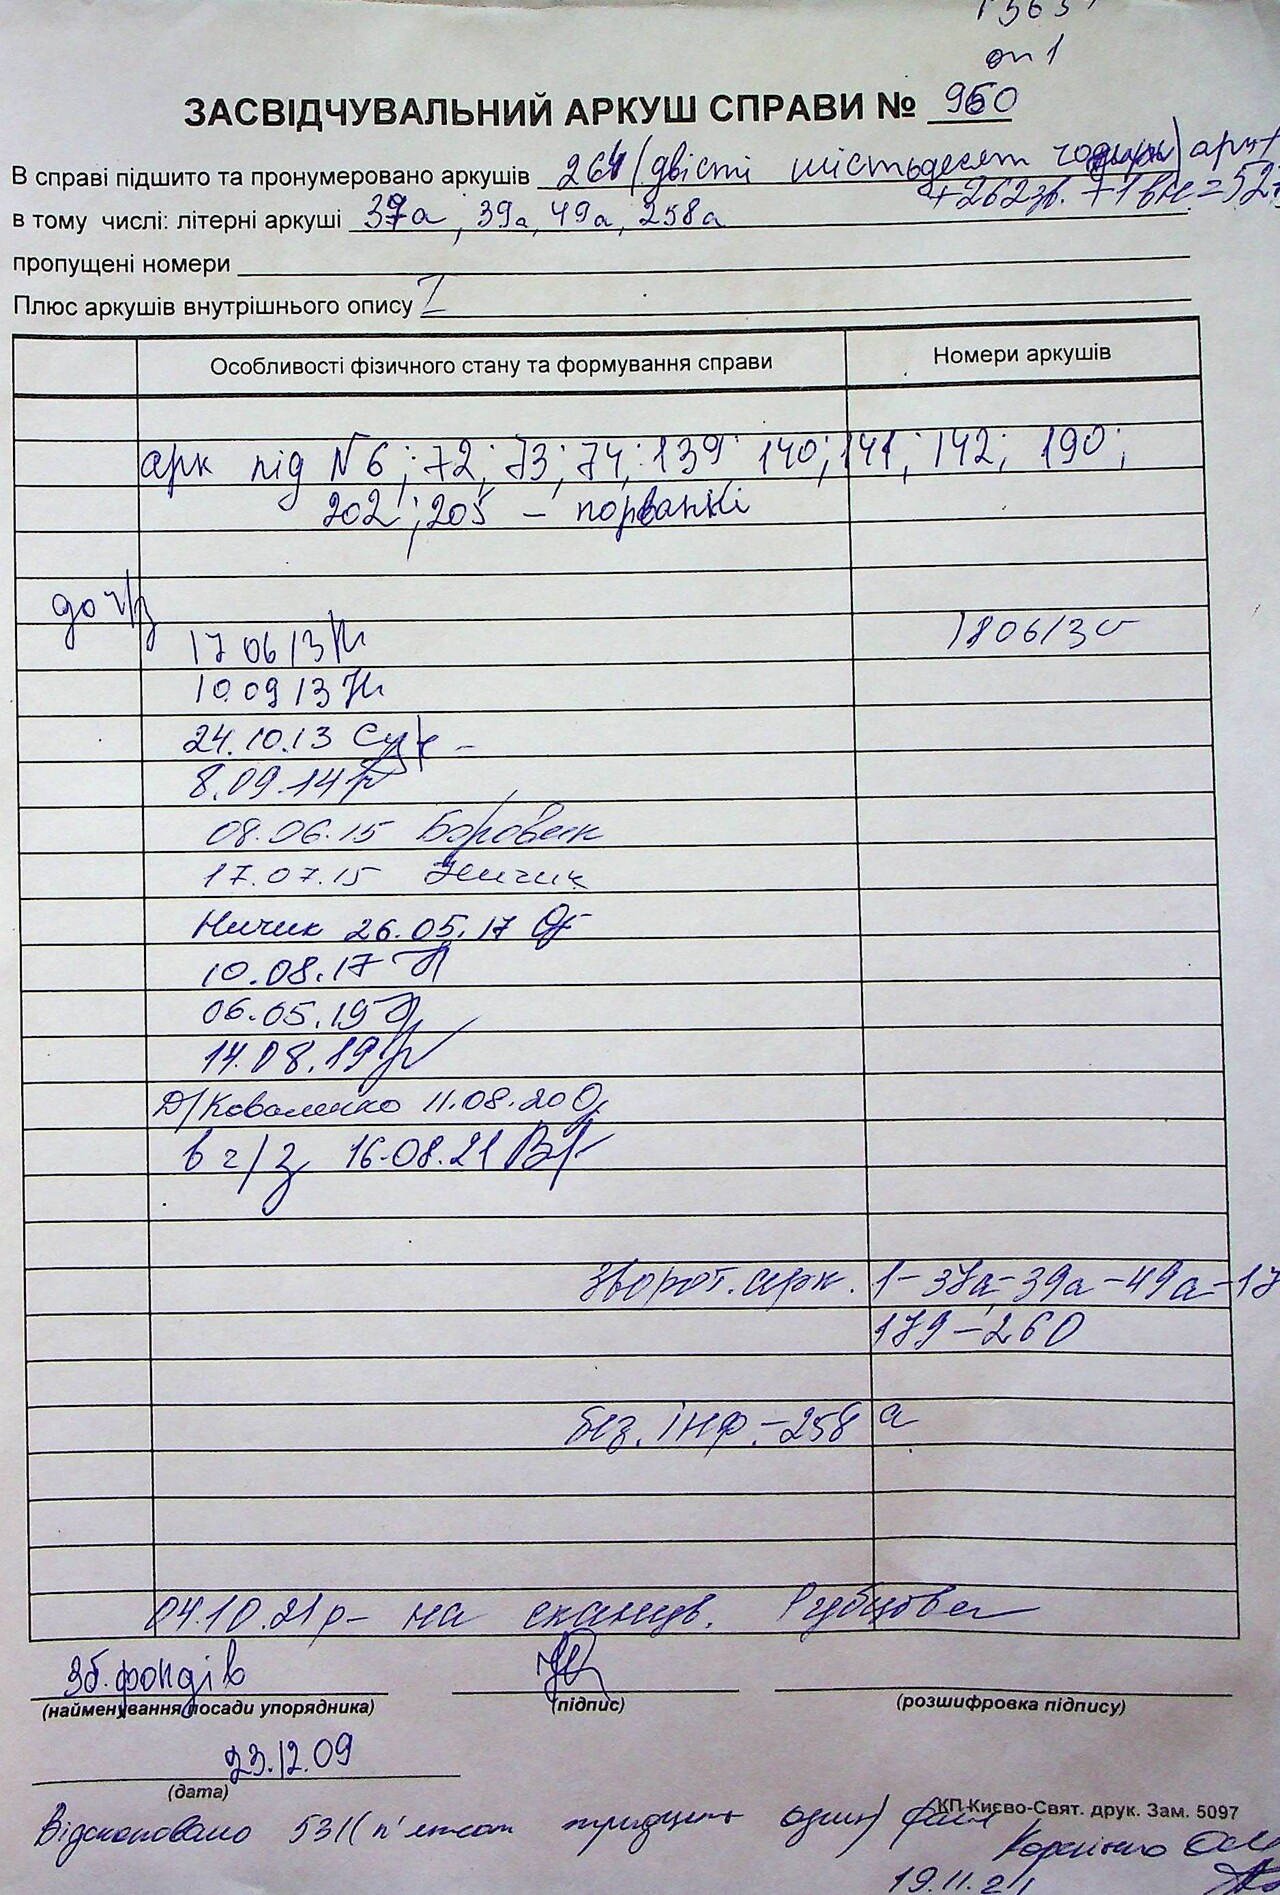 оп 1
ЗАСВІДЧУВАЛЬНИЙ АРКУШ СПРАВИ № 950
В справі підшито та пронумеровано аркушів 264 (двісті шістьдесят чотири) арк +
+ 262 зв. + 1 вн = 527
в тому числі: літерні аркуші 37а, 39а, 49а, 258а
пропущені номери
Плюс аркушів внутрішнього опису 1
Особливості фізичного стану та формування справи Номери аркушів
арк під №6; 72; 73; 74; 139; 140; 141; 142; 190;
202; 205 – порванні
до ч/з
17 06 13 180613
10.09 13
24.10.13
8.09.14
08.06.15 Боровик
17.07.15 Ничик
Ничик 26.05.17
10.08.17
06.05.19
14.08.19
Д/Коваленко 11.08.20
в ч/з 16.08.21
зворот. арк. 1-37а-39а-49а-17
179-260
без. інф. - 258 а
04.10.21р- на сканув. Рубцова
Зб. фондів
(найменування посади упорядника) (підпис) (розшифровка підпису)
23.12.09
(дата)
КП Києво-Свят. друк. Зам. 5097
Відскановано 531 (п'ятсот тридцять один) файл
19.11.21